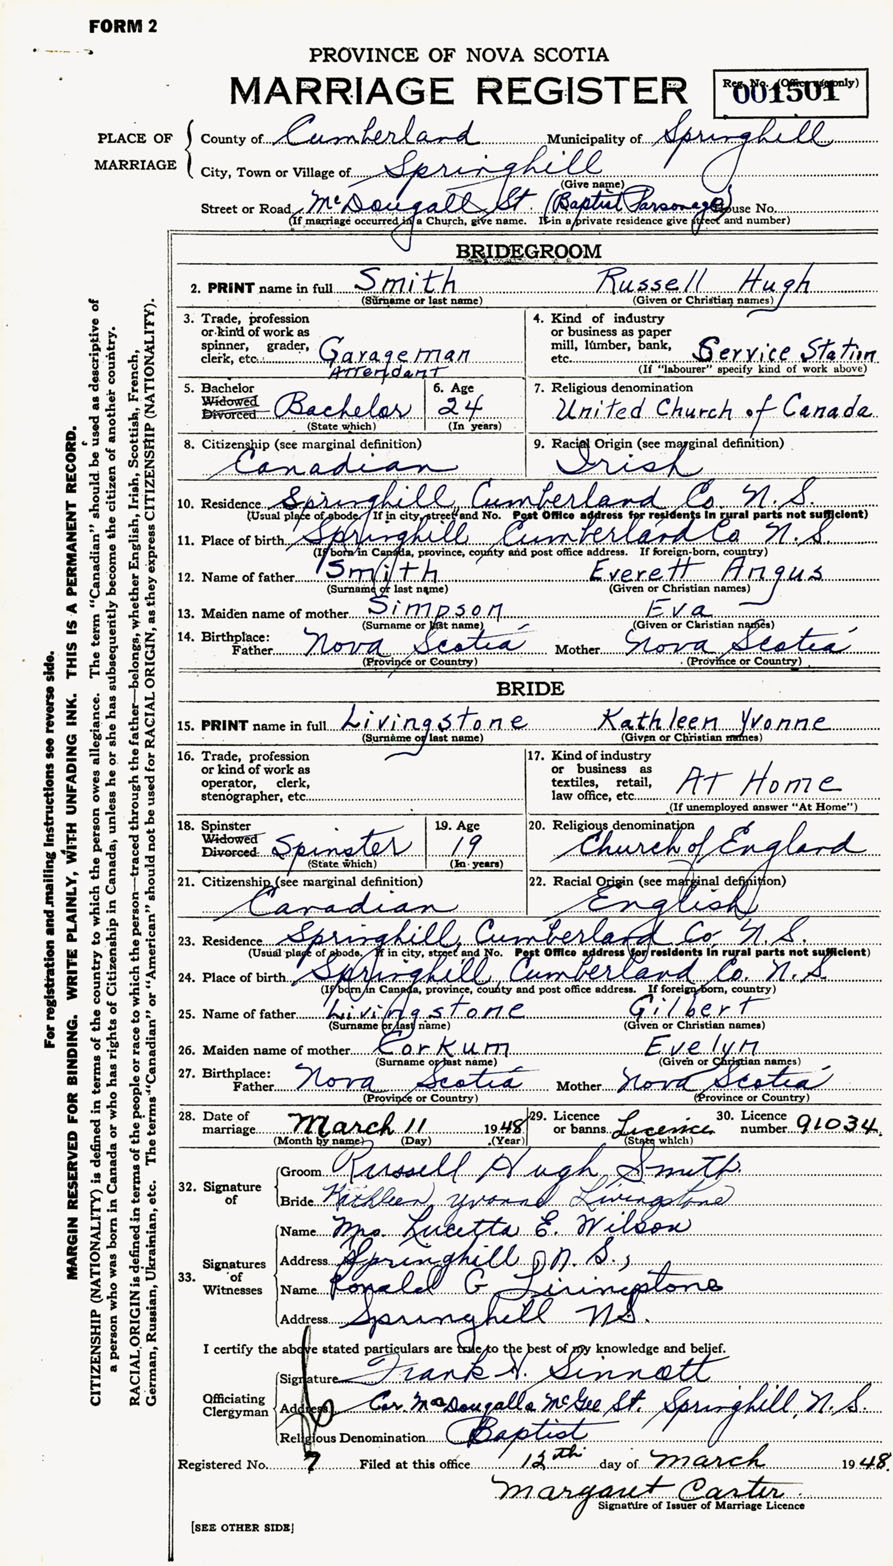 FORM 2
PROVINCE OF NOVA SCOTIA
MARRIAGE REGISTER
Reg. No. (Office use only)
001501
PLACE OF MARRIAGE
County of Cumberland Municipality of Springhill
City, Town or Village of Springhill
(Give name)
Street or Road McDougall St (Baptist Parsonage) House No.
(If marriage occurred in a Church, give name. If in a private residence give street and number)
BRIDEGROOM
2. PRINT name in full Smith Russell Hugh
(Surname or last name) (Given or Christian names)
3. Trade, profession or kind of work as spinner, grader, clerk, etc. Garageman Attendant
4. Kind of industry or business as paper mill, lumber, bank, etc. Service Station
(If "labourer" specify kind of work above)
5. Bachelor Widowed Divorced Bachelor
(State which)
6. Age 24
(In years)
7. Religious denomination
United Church of Canada
8. Citizenship (see marginal definition)
Canadian
9. Racial Origin (see marginal definition)
Irish
10. Residence Springhill, Cumberland Co. N.S.
(Usual place of abode. If in city, street and No. Post Office address for residents in rural parts not sufficient)
11. Place of birth Springhill Cumberland Co N.S.
(If born in Canada, province, county and post office address. If foreign-born, country)
12. Name of father Smith Everett Angus
(Surname or last name) (Given or Christian names)
13. Maiden name of mother Simpson Eva
(Surname or last name) (Given or Christian names)
14. Birthplace: Father Nova Scotia Mother Nova Scotia
(Province or Country) (Province or Country)
BRIDE
15. PRINT name in full Livingstone Kathleen Yvonne
(Surname or last name) (Given or Christian names)
16. Trade, profession or kind of work as operator, clerk, stenographer, etc.
17. Kind of industry or business as textiles, retail, law office, etc. At Home
(If unemployed answer "At Home")
18. Spinster Widowed Divorced Spinster
(State which)
19. Age 19
(In years)
20. Religious denomination
Church of England
21. Citizenship (see marginal definition)
Canadian
22. Racial Origin (see marginal definition)
English
23. Residence Springhill, Cumberland Co N.S.
(Usual place of abode. If in city, street and No. Post Office address for residents in rural parts not sufficient)
24. Place of birth Springhill, Cumberland Co. N.S
(If born in Canada, province, county and post office address. If foreign-born, country)
25. Name of father Livingstone Gilbert
(Surname or last name) (Given or Christian names)
26. Maiden name of mother Corkum Evelyn
(Surname or last name) (Given or Christian names)
27. Birthplace: Father Nova Scotia Mother Nova Scotia
(Province or Country) (Province or Country)
28. Date of marriage March 11 1948
(Month by name) (Day) (Year)
29. Licence or banns Licence
(State which)
30. Licence number 91034
32. Signature of
Groom Russell Hugh Smith
Bride Kathleen Yvonne Livingstone
33. Signatures of Witnesses
Name Mrs. Lucetta E. Wilson
Address Springhill, N.S.,
Name Ronald G Livingstone
Address Springhill NS.
I certify the above stated particulars are true to the best of my knowledge and belief.
Officiating Clergyman
Signature Frank H. Sinnott
Address Cor. McDougall & McGee St. Springhill, N.S.
Religious Denomination Baptist
Registered No. 7 Filed at this office 12th day of March 1948.
Margaret Carter
Signature of Issuer of Marriage Licence
[SEE OTHER SIDE]
For registration and mailing instructions see reverse side.
MARGIN RESERVED FOR BINDING. WRITE PLAINLY, WITH UNFADING INK. THIS IS A PERMANENT RECORD.
CITIZENSHIP (NATIONALITY) is defined in terms of the country to which the person owes allegiance. The term "Canadian" should be used as descriptive of
a person who was born in Canada or who has rights of Citizenship in Canada, unless he or she has subsequently become the citizen of another country.
RACIAL ORIGIN is defined in terms of the people or race to which the person—traced through the father—belongs, whether English, Irish, Scottish, French,
German, Russian, Ukrainian, etc. The terms "Canadian" or "American" should not be used for RACIAL ORIGIN, as they express CITIZENSHIP (NATIONALITY).